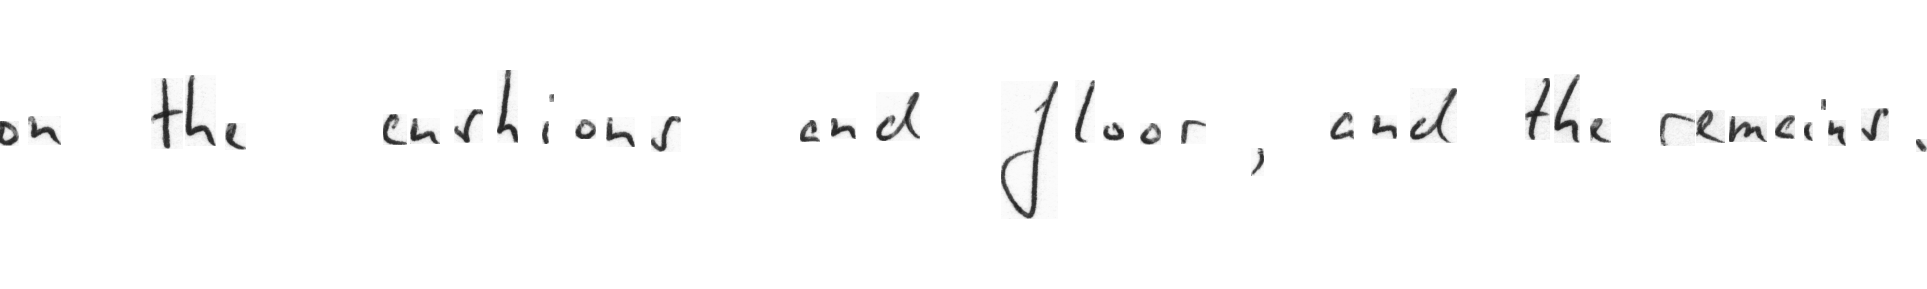 on the cushions and floor, and the remains.